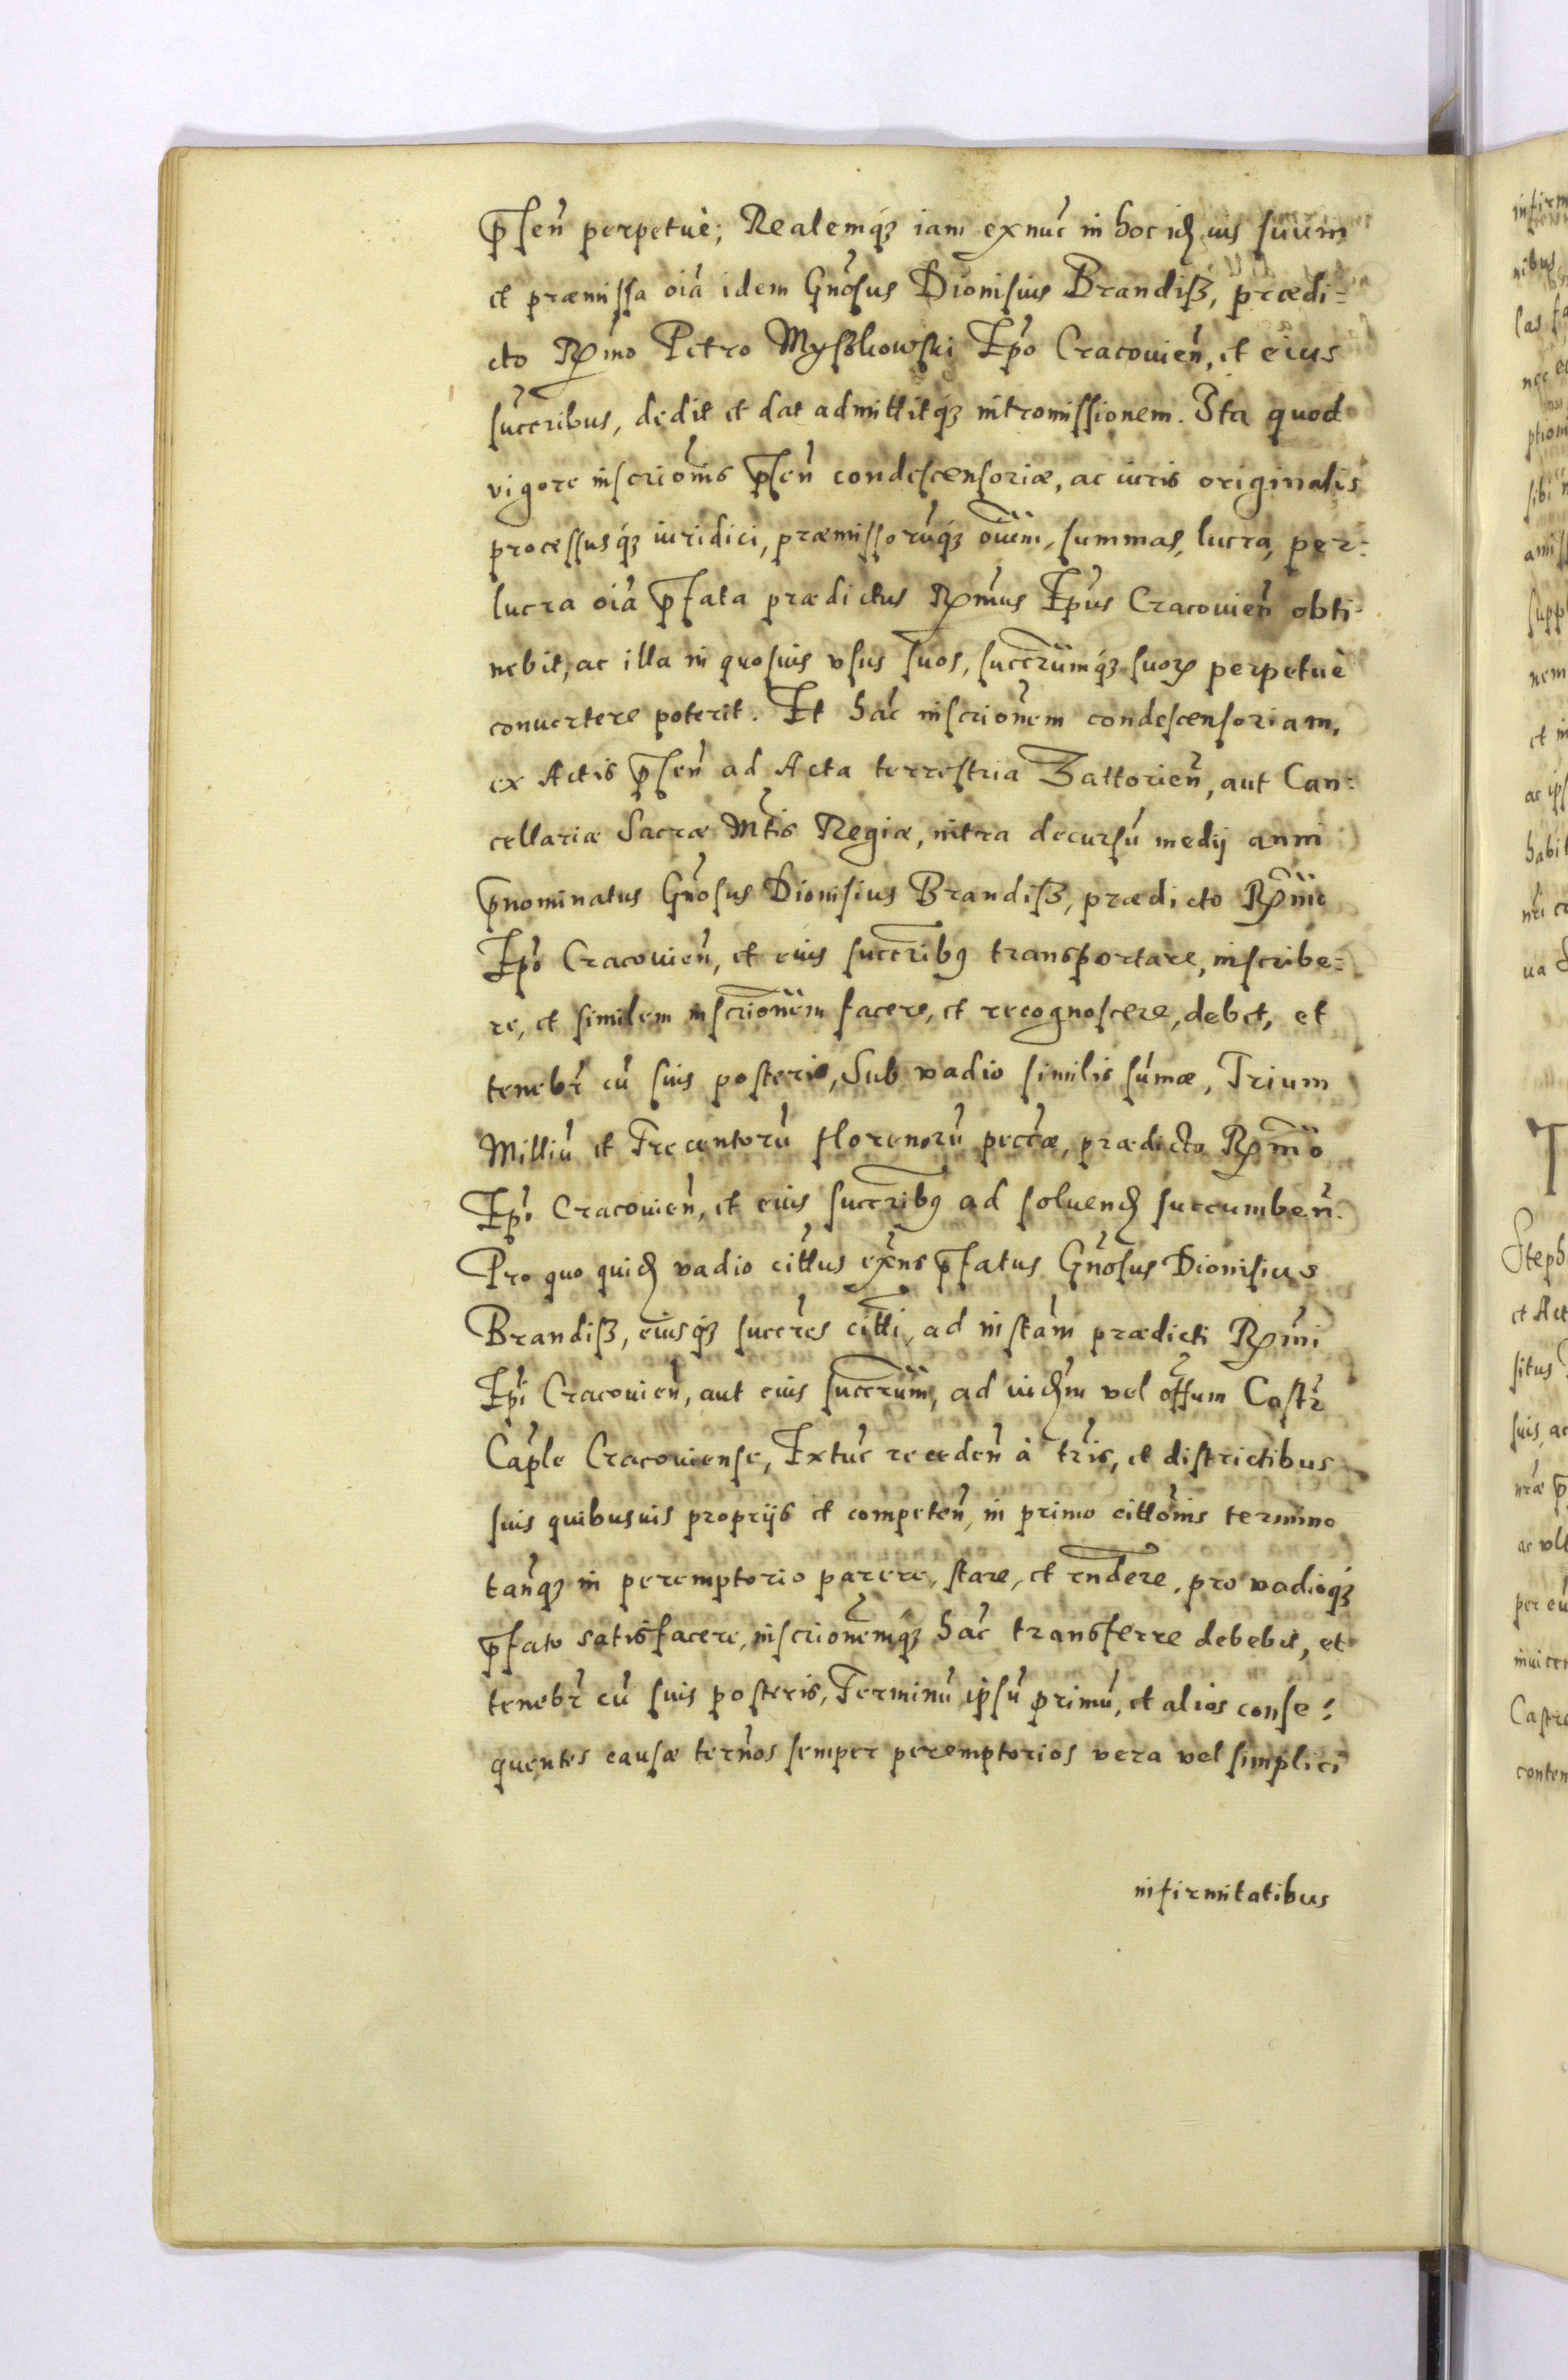 p̃sen̄ perpetuè; Realemq́ꝫ iam exnūc in hoc id ius suum
et præmissa oīa idem Gn̄osus Dionisius Brandisz, prædi=
cto Rmo Petro Myszkowski Ep̄o Cracouien̄, et eius
succribus, dedit et dat admittitq́ꝫ intromissionem. Ita quod
vigore inscrionis p̃sen̄ condescensoriæ, ac iuris originalis
processusq́ꝫ iuridici, præmissorūq́ꝫ oīum, summas, lucra, per=
lucra oīa p̃fata prædictus Rmus Ep̄us Cracouien̄ obti-
nebit, ac illa in quosuis vsus suos, succrumq́ꝫ suoꝝ perpetuè
conuertere poterit. Et hāc inscrionem condescensoriam,
ex Actis p̃sen̄ ad Acta terrestria Zattorien̄, aut Can=
cellariæ Sacræ Mtis Regiæ, intra decursū medij anni
p̃nominatus Gn̄osus Dionisius Brandisz, prædicto Rmo
Ep̄o Cracouien̄, et eius succribꝰ transportare, inscribe=
re, et similem inscrionem facere, et recognoscere, debet, et
tenebr̄ cū suis posteris, Sub vadio similis sūmæ, Trium
Milliū et Trecentorū florenorū peccæ, prædicto Rmo
Ep̄o Cracouien̄, et eius succribꝰ ad soluend succumben̄.
Pro quo quid vadio cittus exn̄s p̃fatus Gn̄osus Dionisius
Brandisz, eiusq́ꝫ succres citti, ad instām prædicti Rmi
Ep̄i Cracouien̄, aut eius succrum, ad iudm vel offum Castr̄
Cap̄le Cracouiense, Extūc receden̄ à tr̄is, et districtibus
suis quibusuis proprijs et competen̄, in primo cittonis termino
tanq́ꝫ in peremptorio parere, stare, et rndere, pro vadioq́ꝫ
p̃fato satisfacere, inscrionemq́ꝫ hāc transferre debebit, et
tenebr̄ cū suis posteris, Terminū ipsū primū, et alios conse=
quentes causæ tern̄os semper peremptorios vera vel simplici
infirmitatibus